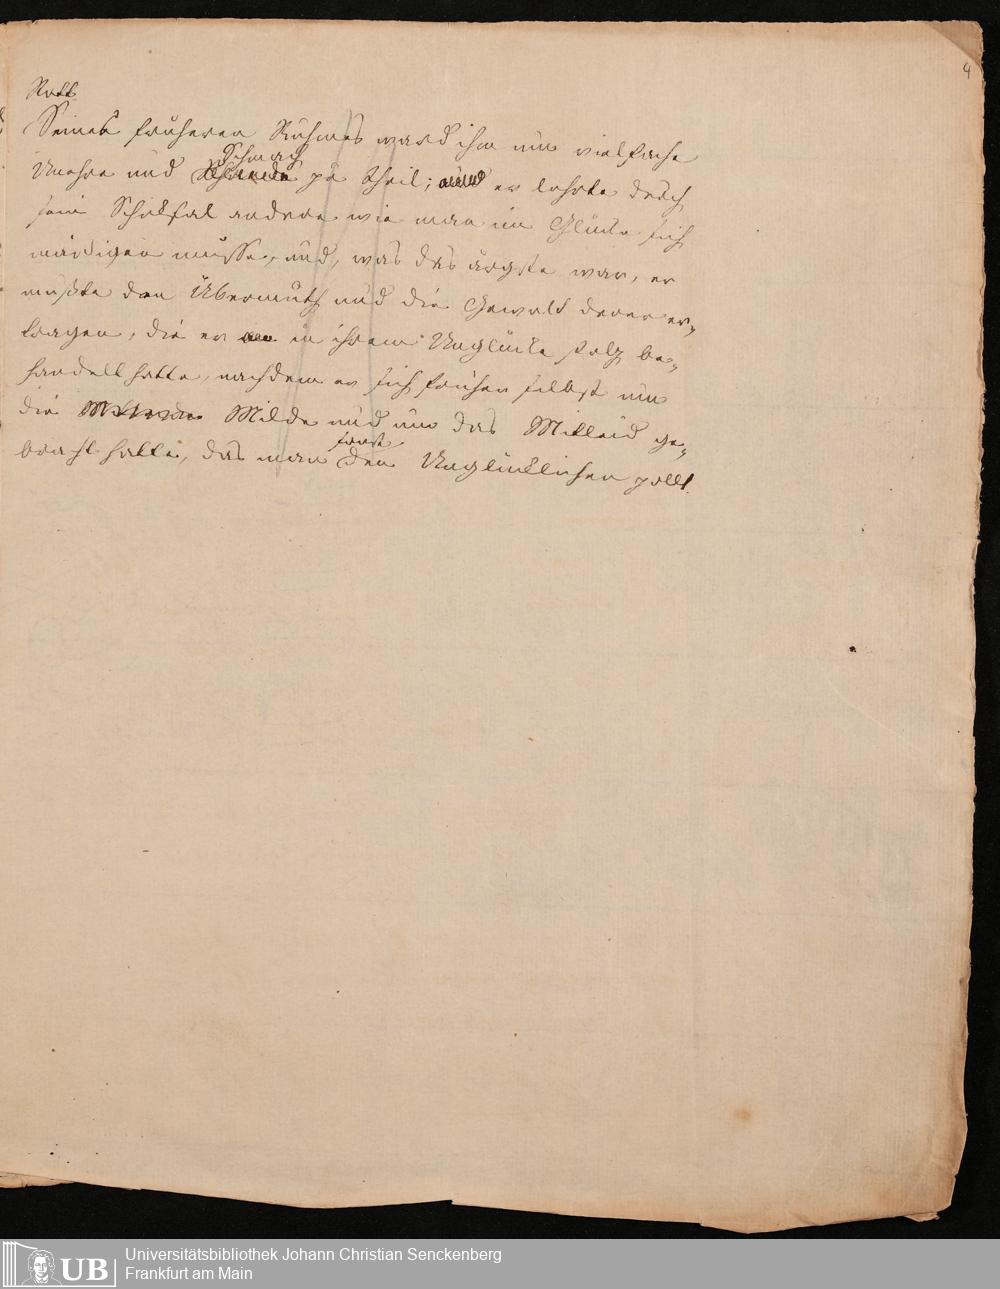 4
Statt
Seines früheren Ruhmes ward ihm nun vielfache
Schmach
Unehre und Schande zu theil; und er lehrte durch
sein Schiksal andere wie man im Glücke sich
mäßigen müsse, und, was das ärgste war, er
mußte den Übermuth und die Gewalt derer er-
tragen, die er in ihrem Unglücke stolz be-
handelt hatte, nachdem er sich früher selbst um
die Milde und um das Mitleid ge-
sonst
bracht hatte, das man den Unglücklichen zollt.
UB
Universitätsbibliothek Johann Christian Senckenberg
Frankfurt am Main